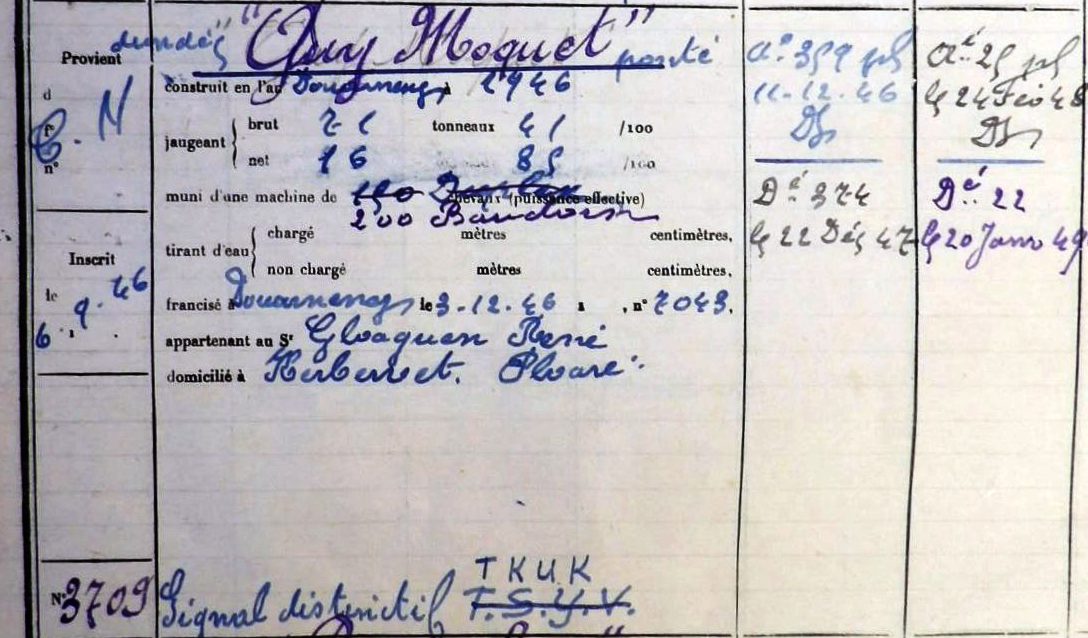 Provient
d
C. N
f°
n°
Inscrit
le
6 . 9 . 46
N° 3709
dundée "Guy Moquet" ponté
construit en l'an Douarnenez à 1946
jaugeant { brut 71 tonneaux 41 /100
net 16 85 /100
muni d'une machine de chevaux (puissance effective)
200 Baudouin
tirant d'eau { chargé mètres centimètres,
non chargé mètres centimètres,
francisé à Douarnenez le 3-12.46 , n° 7043,
appartenant au Sr Gloaguen René
domicilié à Ploaré.
TKUK
Signal distinctif T.S.Y.V.
Aé 359
11-12.46
Dé 374
le 22 Déc 47
Aé 25
le 24 Fév 48
Dé 22
le 20 Janv 49